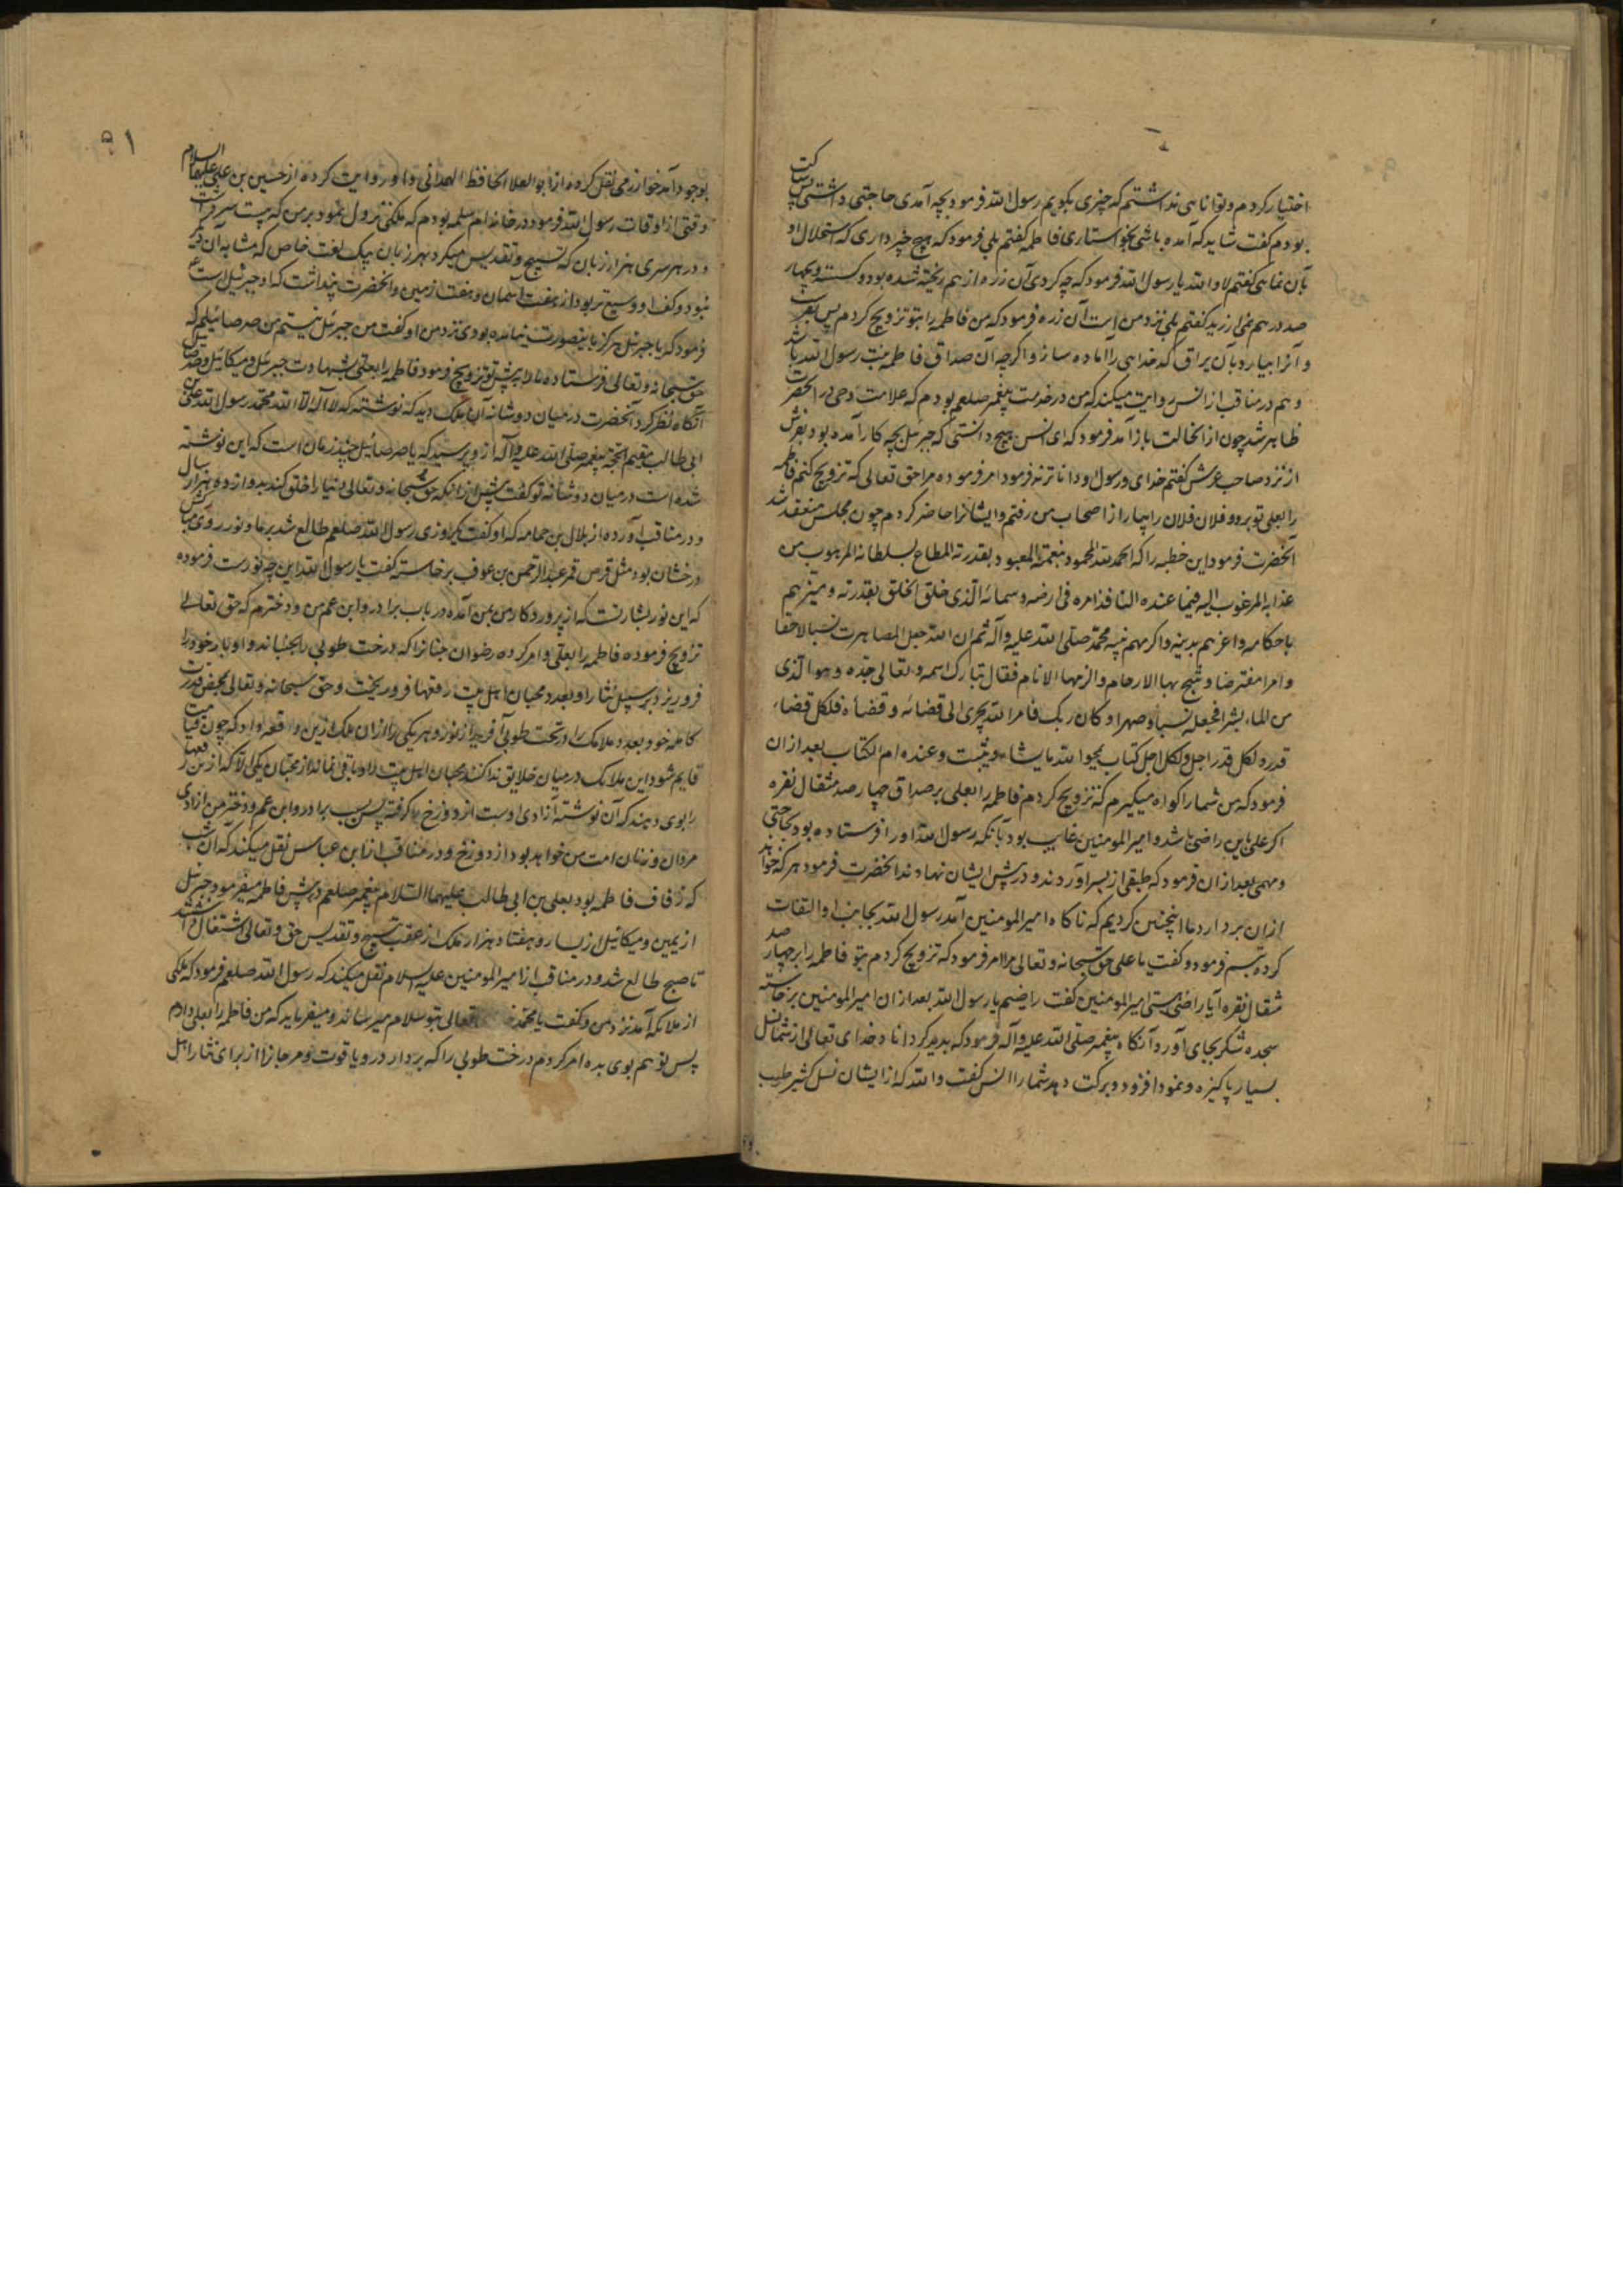 اختیار کردم و توانایی نداشتم که چیزی بگویم رسول الله فرمود بچه آمدی حاجتی داشتی پس ساکت
بودم گفت شاید که آمده باشی بخواستاری فاطمه گفتم بلی فرمود که هیچ چیز داری که استحلال او
بآن نمایی گفتم لا والله یا رسول الله فرمود که چه کردی آن زره از هم ریخته شده بود و بچهار
صد درهم می ارزید گفتم بلی نزد من است آن زره فرمود که من فاطمه را بتو تزویج کردم پس بفرست
و آنرا بیار و بآن یراق کدخدایی را آماده ساز و اگرچه آن صداق فاطمه بنت رسول الله باشد
و هم در مناقب از انس روایت میکند که من در خدمت پیغمبر صلعم بودم که علامت وحی در آنحضرت
ظاهر شد چون از انحالت باز آمد فرمود که ای انس هیچ دانستی که جبرئیل بچه کار آمده بود بفرش
از نزد صاحب عرش گفتم خدای و رسول او داناترند فرمود امر فرموده مرا حق تعالی که تزویج کنم فاطمه
را بعلی تو برو و فلان فلان را بیار از اصحاب من رفتم و ایشانرا حاضر کردم چون مجلس منعقد شد
آنحضرت فرمود این خطبه را که الحمد لله المحمود بنعمته المعبود بقدرته المطاع بسلطانه المرهوب من
عذابه المرغوب الیه فیما عنده النافذ امره فی ارضه و سمائه الذی خلق الخلق بقدرته و میزهم
باحکامه و اعزهم بدینه و اکرمهم نبیه محمد صلی الله علیه و آله ثم ان الله جعل المصاهرت نسبا لاحقا
و امرا مفترضا و شج بها الارحام و الزمها الانام فقال تبارک اسمه و تعالی جده و هو الذی
من الماء بشرا فجعله نسبا و صهرا و کان ربک فامر الله یجری الی قضائه و قضاءه فلکل قضاء
قدر و لکل قدر اجل و لکل اجل کتاب یمحوا الله ما یشاء و یثبت و عنده ام الکتاب بعد از ان
فرمود که من شما را گواه میگیرم که تزویج کردم فاطمه را بعلی بر صداق چهارصد مثقال نقره
اگر علی باین راضی باشد و امیر المومنین غایب بود بآنکه رسول الله او را فرستاده بود بحاجتی
و مهمی بعد از ان فرمود که طبقی از بسر آوردند و در پیش ایشان نهادند آنحضرت فرمود هر که خواهد
از ان بردارد ما اینچنین کردیم که ناگاه امیر المومنین آمد رسول الله بجانب او التفات
کرده تبسم فرمود و گفت یا علی حق سبحانه و تعالی مرا امر فرمود که تزویج کردم بتو فاطمه را بر چهارصد
مثقال نقره آیا راضی هستی امیر المومنین گفت راضیم یا رسول الله بعد از ان امیر المومنین برخاسته
سجده شکر بجای آورد آنگاه پیغمبر صلی الله علیه و آله فرمود که پدید کرداناد خدای تعالی از شما نسل
بسیار پاکیزه و نمود افزود و برکت دهد شما را انس گفت والله که از ایشان نسل کثیر طیب
۹۱
بوجود آمد خوارزمی نقل کرده از ابو العلا الحافظ الهمدانی و او روایت کرده از حسین بن علی علیهما السلام
وقتی از اوقات رسول الله فرمود در خانه ام سلمه بودم که ملکی نزول نمود بر من که بیست سر داشت
و در هر سری هزار زبان که تسبیح و تقدیس میکرد بهر زبان بیک لغت خاص که مشابه آن دیگر
نبود و کف او وسیع تر بود از هفت آسمان و هفت زمین و آنحضرت پنداشت که او جبرئیل است
فرمود که یا جبرئیل هرگز باینصورت نیامده بودی نزد من او گفت من جبرئیل نیستم من صرصائیلم که
حق سبحانه و تعالی فرستاده ما را پیش تو تزویج فرمود فاطمه را بعلی بشهادت جبرئیل و میکائیل و صرصائیل
آنگاه نظر کرد آنحضرت در میان دوشانه آن ملک دید که نوشته که لا اله الا الله محمد رسول الله علی بن
ابی طالب مقیم الحجة پیغمبر صلی الله علیه و آله ازو پرسید که یا صرصائیل چند زمان است که این نوشته
شده است در میان دوشانه تو گفت پیش از آنکه حق سبحانه و تعالی دنیا را خلق کند بدوازده هزار سال
و در مناقب آورده از بلال بن حمامه که او گفت که روزی رسول الله صلعم طالع شد بر ما و نور روی مبارکش
درخشان بود مثل قرص قمر عبد الرحمن بن عوف برخاسته گفت یا رسول الله این چه نورست فرموده
که این نور بشارتست که از پروردکار من بمن آمده در باب برادر و ابن عم من و دخترم که حق تعالی
تزویج فرموده فاطمه را بعلی و امر کرده رضوان جنانرا که درخت طوبی را بجنباند و او بار خود را
فرو ریزد بر سبیل نثار او بعدد محبان اهل بیت رقعها فرو ریخت و حق سبحانه و تعالی بمحض قدرت
کامله خود بعدد ملایک را در تحت طوبی آفرید از نور و هر یکی را از ان ملک ازین رقعه داد که چون قیامت
قایم شود این ملایک در میان خلایق ندا کنند محبان اهل بیت را و باقی نماند از محبان یکی الا که ازین رقعها
را بوی دهند که آن نوشته آزادی اوست از دوزخ پس بسبب برادر و ابن عم و دختر من آزادی
مردان و زنان امت من خواهد بود از دوزخ و در مناقب از ابن عباس نقل میکند که آن شب
که زفاف فاطمه بود بعلی بن ابی طالب علیهما السلام پیغمبر صلعم در پیش فاطمه میفرمود و جبرئیل
از یمین و میکائیل از یسار و هفتاد هزار ملک از عقب تسبیح و تقدیس حق و تعالی اشتغال داشتند
تا صبح طالع شد و در مناقب از امیر المومنین علیه السلام نقل میکند که رسول الله صلعم فرمود که ملکی
از ملائکه آمد نزد من و گفت یا محمد تعالی بتو سلام میرساند و میفرماید که من فاطمه را بعلی دادم
پس تو هم بوی بده امر کردم درخت طوبی را که بردارد در و یاقوت و مرجانرا از برای نثار اهل